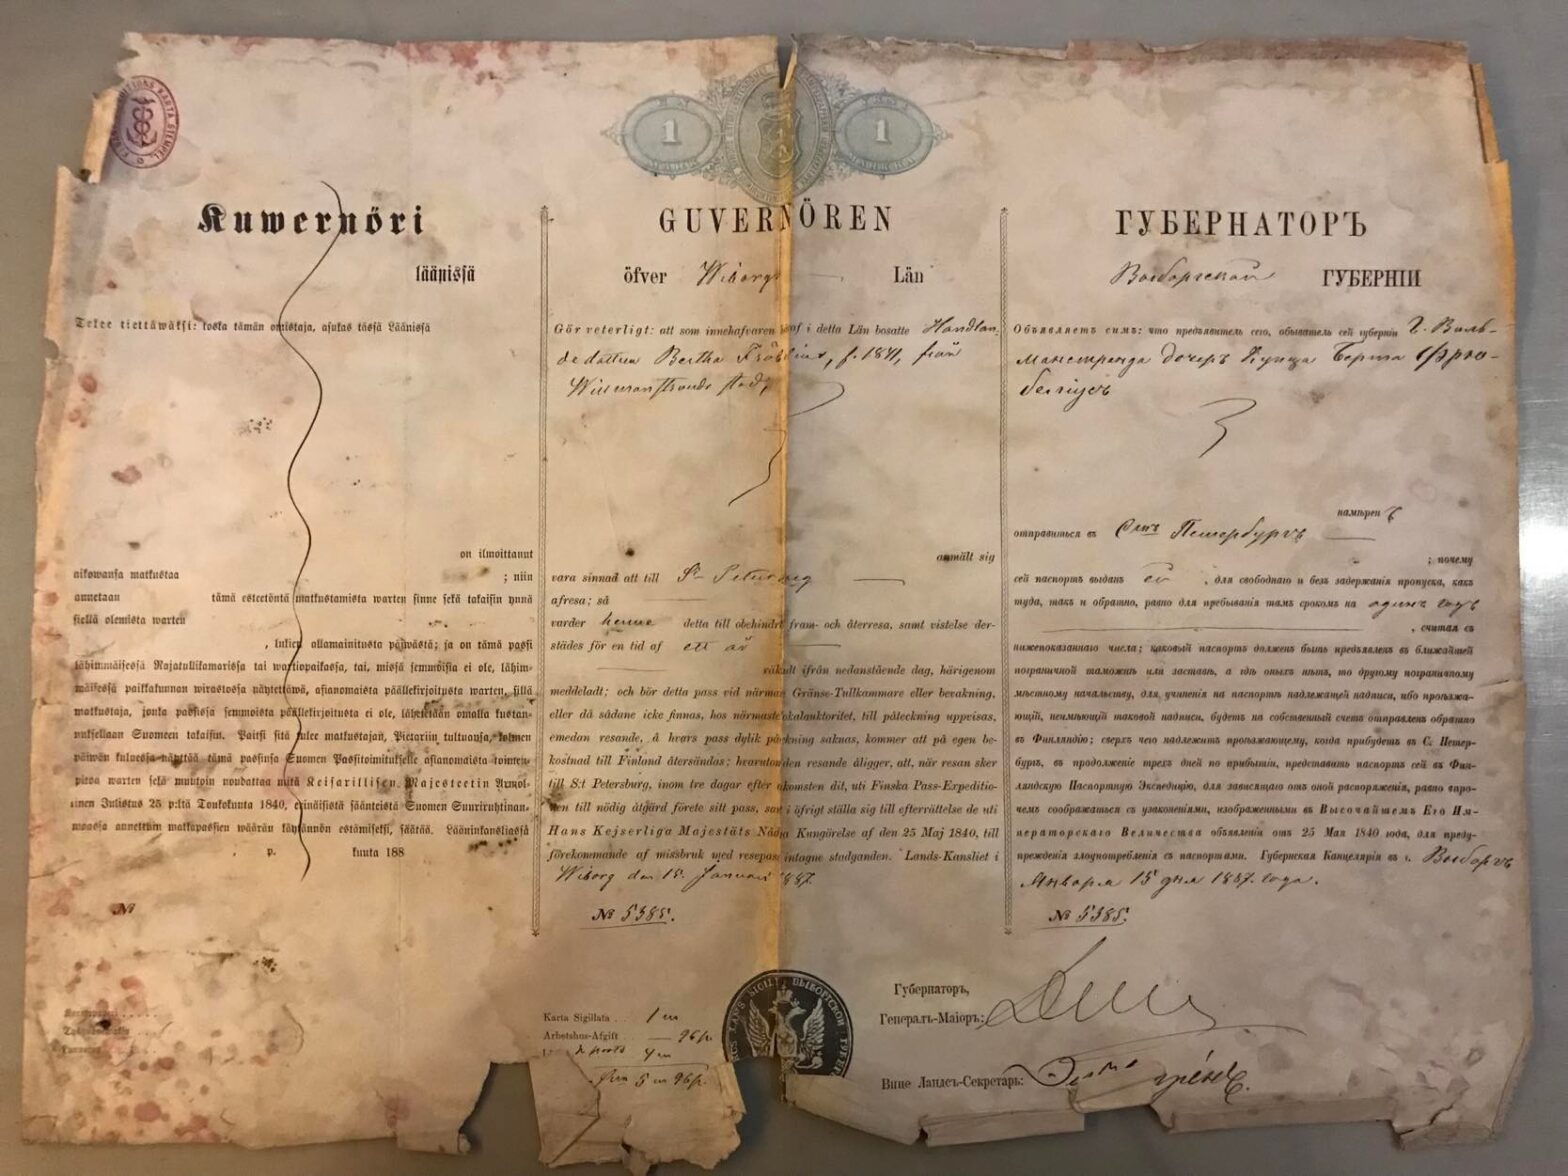 1 1
Kuwernöri
läänissä
Tekee tiettäwäksi: koska tämän omistaja, asukas tässä Läänissä
on ilmoittanut
aikowansa matkustaa ; niin
annetaan tämä esteetöntä matkustamista warten sinne sekä takaisin ynnä
siellä olemista warten
, lukien allamainitusta päiwästä; ja on tämä passi
lähimmäisessä Rajatullikamarissa tai wartiopaikassa, tai, missä semmoisia ei ole, lähim-
mäisessä paikkakunnan wirastossa näytettäwä, asianomaista päällekirjoitusta warten, sillä
matkustaja, jonka passissa semmoista päällekirjoitusta ei ole, lähetetään omalla kustan-
nuksellaan Suomeen takaisin. Paitsi sitä tulee matkustajan, Pietariin tultuansa, kolmen
päiwän kuluessa näyttää tämä passinsa Suomen Passitoimitukselle asianomaista toimen-
pitoa warten sekä muutoin noudattaa mitä Keisarillisen Majesteetin Armol-
linen Julistus 25 p:ltä Toukokuuta 1840, erinäisistä säänteistä Suomen Suuriruhtinan-
maassa annettuin matkapassien wäärän käytännön estämiseksi, säätää. Lääninkansliassa
p. kuuta 188
№
GUVERNÖREN
öfver Wiborgs Län
Gör veterligt: att som innehafvaren häraf i detta Län bosatte Handlan-
de dottren Bertha Fröbelius, f. 1841, från
Willmanstrands stad,
anmält sig
vara sinnad att till S:t Petersburg
afresa; så
varder henne detta till obehindrad fram- och återresa, samt vistelse der-
städes för en tid af ett år
räknadt ifrån nedanstående dag, härigenom
meddeladt; och bör detta pass vid närmaste Gränse-Tullkammare eller bevakning,
eller då sådane icke finnas, hos närmaste lokalauktoritet, till påteckning uppvisas,
emedan resande, å hvars pass dylik påteckning saknas, kommer att på egen be-
kostnad till Finland återsändas; hvarutom den resande åligger, att, när resan sker
till S:t Petersburg, inom tre dagar efter ankomsten dit, uti Finska Pass-Expeditio-
nen till nödig åtgärd förete sitt pass, samt i öfrigt ställa sig till efterrättelse de uti
Hans Kejserliga Majestäts Nådiga Kungörelse af den 25 Maj 1840, till
förekommande af missbruk med resepass intagne stadganden. Lands-Kansliet i
Wiborg den 15 Januari 1887.
№ 5385.
Karta Sigillata 1 m
Arbetshus-Afgift 96 p.
ГУБЕРНАТОРЪ
Выборгской ГУБЕРНІИ
Объявляетъ симъ: что предъявитель сего, обыватель сей губерніи г. Виль-
манстранда дочерь Купца Берта Фрю-
беліусъ
намѣрена
отправиться въ Санктъ Петербургъ
; почему
сей паспортъ выданъ ей, для свободнаго и безъ задержанія пропуска, какъ
туда, такъ и обратно, равно для пребыванія тамъ срокомъ на одинъ годъ
, считая съ
нижепоказаннаго числа; каковый паспортъ долженъ быть предъявленъ въ ближайшей
пограничной таможнѣ или заставѣ, а гдѣ оныхъ нѣтъ, то другому пограничному
мѣстному начальству, для учиненія на паспортѣ надлежащей надписи, ибо проѣзжа-
ющій, неимѣющій таковой надписи, будетъ на собственный счетъ отправленъ обратно
въ Финландію; сверхъ чего надлежитъ проѣзжающему, когда прибудетъ въ С. Петер-
бургъ, въ продолженіе трехъ дней по прибытіи, представить паспортъ сей въ Фин-
ляндскую Паспортную Экспедицію, для зависящаго отъ оной распоряженія, равно впро-
чемъ сообразоваться съ узаконеніями, изображенными въ Высочайшемъ Его Им-
ператорскаго Величества объявленіи отъ 25 Мая 1840 года, для преду-
прежденія злоупотребленія съ паспортами. Губернская Канцелярія въ г. Выборгъ
Января 15 дня 1887 года.
№ 5385.
Губернаторъ,
Генералъ-Маіоръ:
Вице Ландсъ-Секретарь: